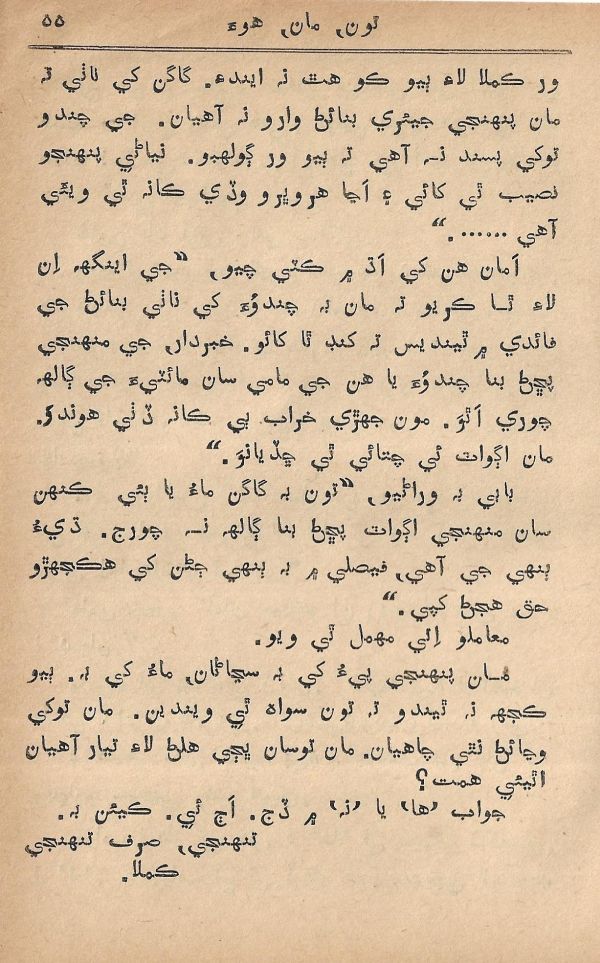 تون، مان، هوءَ ٥٥
ور ڪملا لاءِ ٻيو ڪو هٿ نہ ايندءِ. گاگن کي ناٺي تہ
مان پنهنجي جيئري بنائڻ وارو نہ آهيان. جي چندو
توکي پسند نہ آهي تہ ٻيو ور ڳولهيو. نياڻي پنهنجو
نصيب ٿي کائي ۽ اڃا هروڀرو وڏي ڪانہ ٿي ويئي
آهي .......“
اَمان هن کي اَڌ ۾ ڪٽي چيو، ”جي اينگهہ اِن
لاءِ ٿا ڪريو تہ مان بہ چندوءَ کي ناٺي بنائڻ جي
فائدي ۾ ٿينديس تہ کنڊ ٿا کائو. خبردار، جي منهنجي
پڇڻ بنا چندوءَ يا هن جي مامي سان مائٽيءَ جي ڳالهہ
چوري اَٿوَ. مون جهڙي خراب ٻي ڪانہ ڏٺي هوندوَ.
مان اڳواٽ ئي چتائي ٿي ڇڏيانوَ.“
بابي بہ وراڻيو، ”تون بہ گاگن ماءُ يا ٻئي ڪنهن
سان منهنجي اڳواٽ پڇڻ بنا ڳالهہ نہ چورج. ڌيءُ
ٻنهي جي آهي، فيصلي ۾ بہ ٻنهي ڄڻن کي هڪجهڙو
حق هجڻ کپي.“
معاملو اِئي مهمل ٿي ويو.
مان پنهنجي پيءُ کي بہ سڃاڻان، ماءُ کي بہ. ٻيو
ڪجهہ نہ ٿيندو تہ تون سواهہ ٿي ويندين. مان توکي
وڃائڻ نٿي چاهيان. مان توسان ڀڄي هلڻ لاءِ تيار آهيان
اٿيئي همت؟
جواب ’ها‘ يا ’نہ‘ ۾ ڏج. اَڄ ئي. ڪيئن بہ.
تنهنجي، صرف تنهنجي
ڪملا.